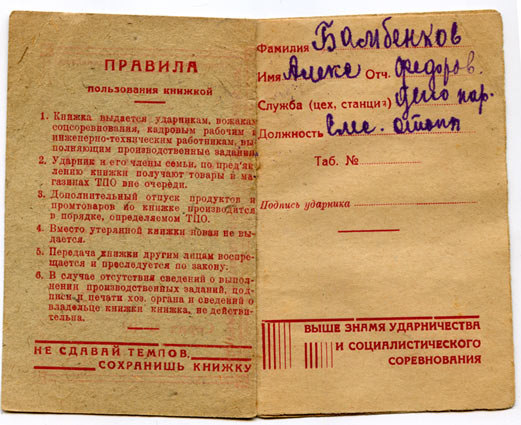 ПРАВИЛА
пользования книжкой
1. Книжка выдается ударникам, вожакам
соцсоревнования, кадровым рабочим и
инженерно-техническим работникам, вы-
полняющим производственные задания.
2. Ударник и его члены семьи, по пред'яв-
лению книжки получают товары в ма-
газинах ТПО вне очереди.
3. Дополнительный отпуск продуктов и
промтоваров по книжке производится
в порядке, определяемом ТПО.
4. Вместо утерянной книжки новая не вы-
дается.
5. Передача книжки другим лицам воспре-
щается и преследуется по закону.
6. В случае отсутствия сведений о выпол-
нении производственных заданий, под-
писи и печати хоз. органа и сведений о
владельце книжки книжка, не действи-
тельна.
НЕ СДАВАЙ ТЕМПОВ,
СОХРАНИШЬ КНИЖКУ
Фамилия Бамбенков
Имя Алекс Отч. Федоров.
Служба (цех, станция) Депо пар.
Должность
Таб. №
Подпись ударника
ВЫШЕ ЗНАМЯ УДАРНИЧЕСТВА
И СОЦИАЛИСТИЧЕСКОГО
СОРЕВНОВАНИЯ